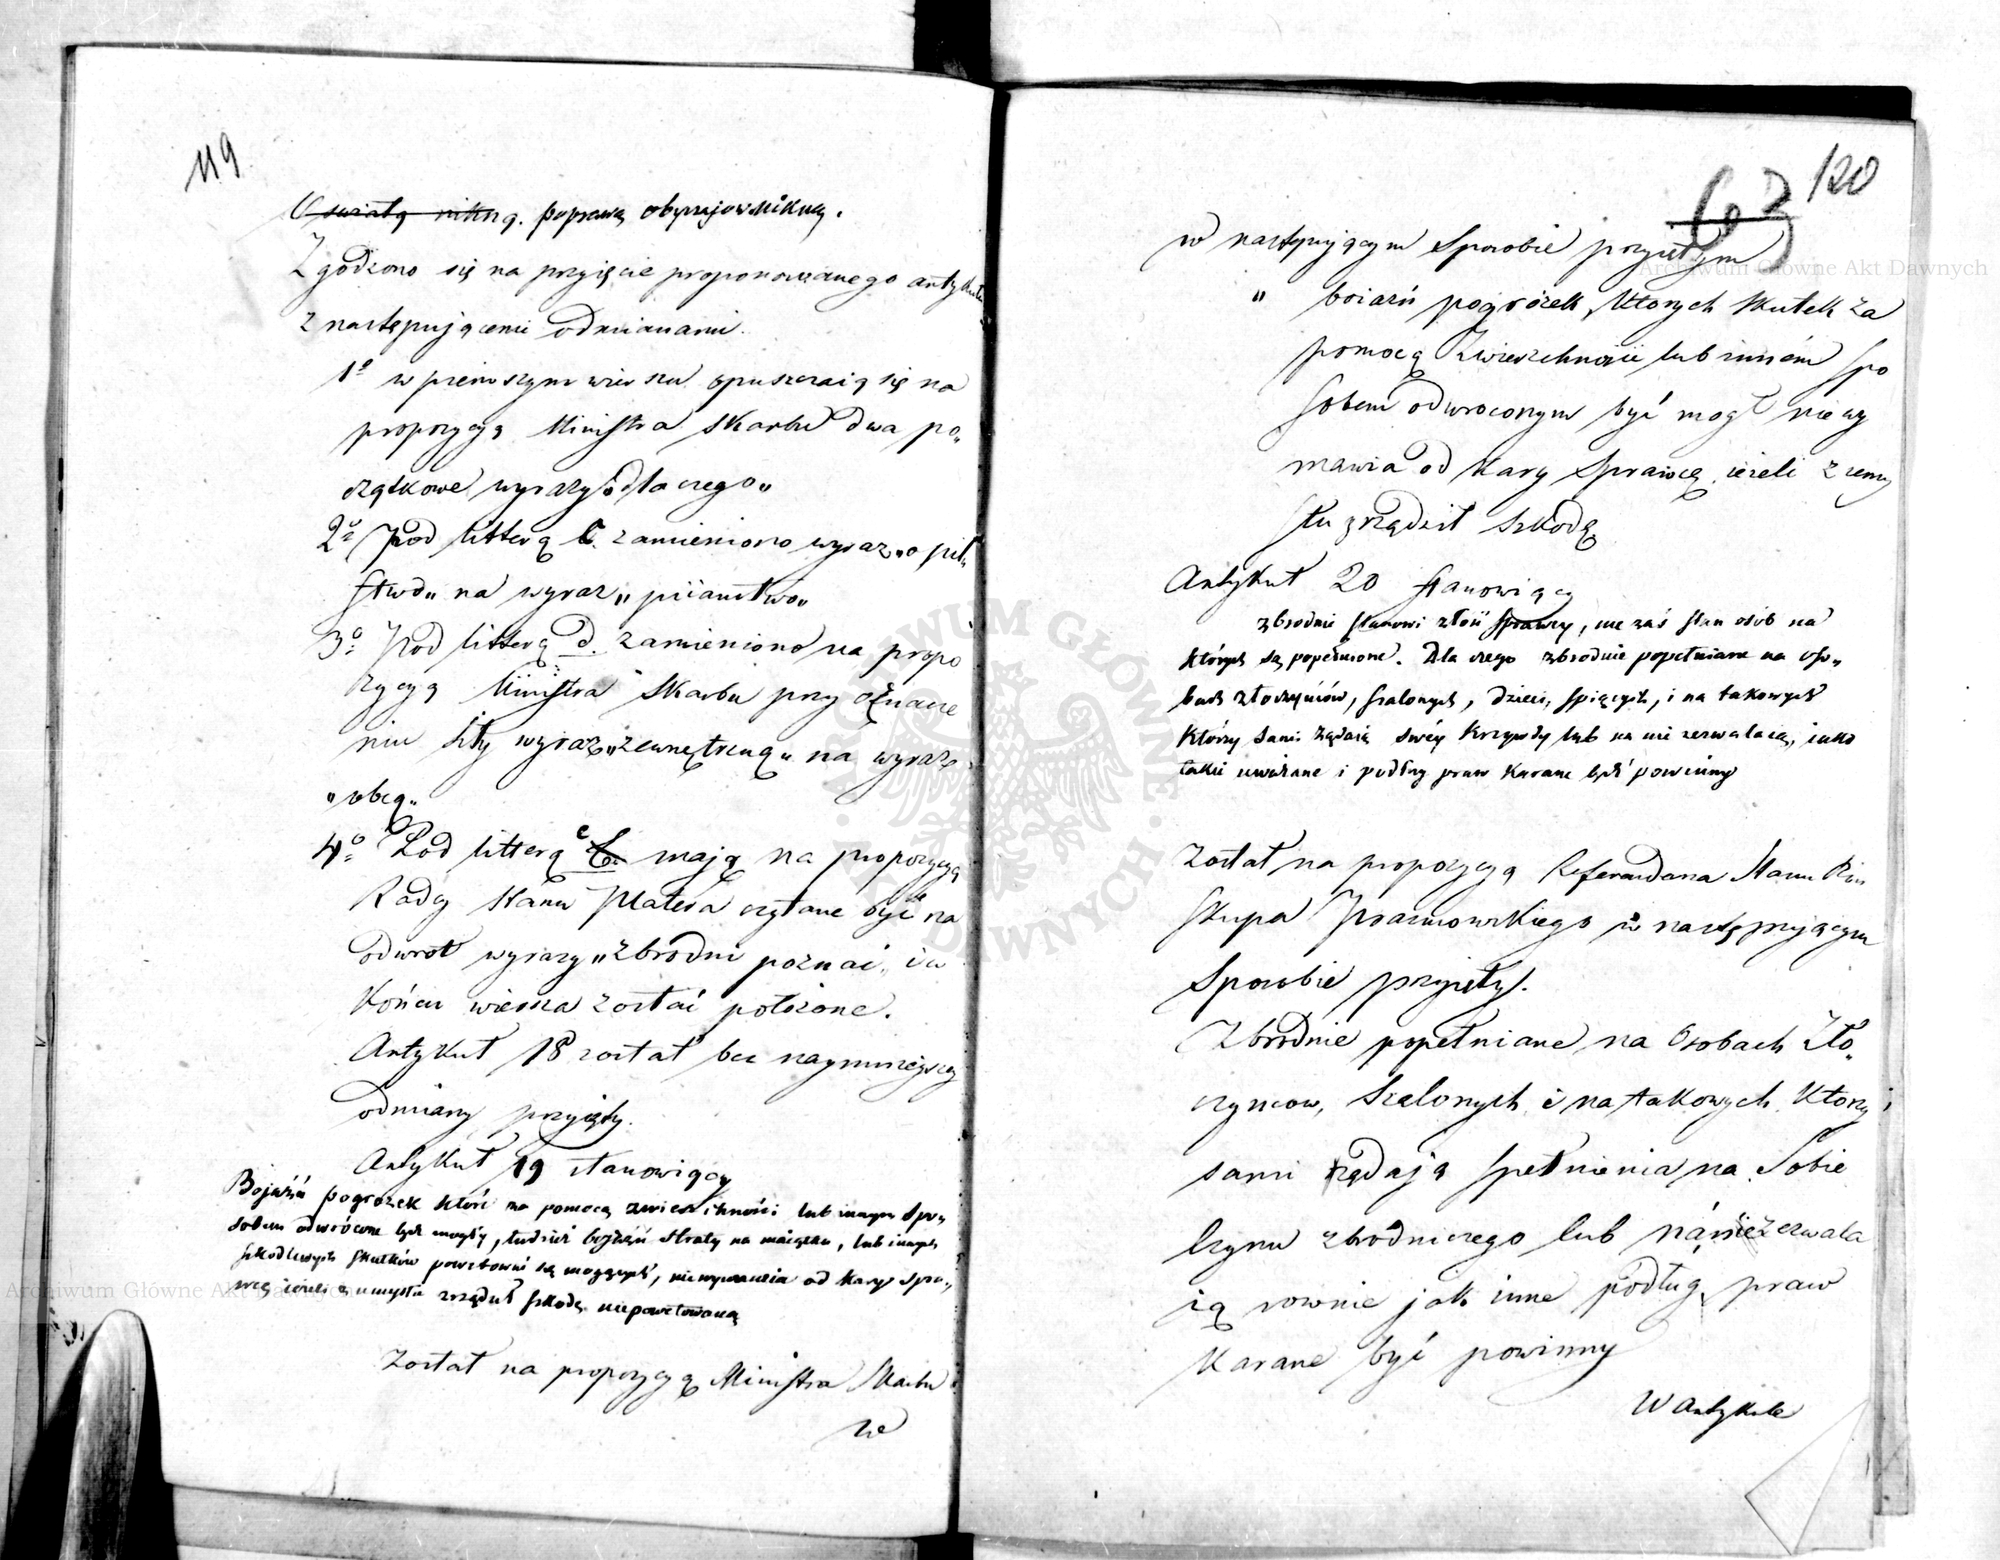 119
Oświatą nikną. poprawą obyczajow nikną.
Zgodzono się na przyięcie proponowanego artykułu
z następującemi odmianami.
1º w pierwszym wierszu opuszczaią się na
propozycyą Ministra Skarbu dwa po„
czątkowe wyrazy „dla czego„
2º Pod litterą C. zamieniono wyraz „opil„
stwo„ na wyraz „piiaństwo„
3º Pod litterą d. zamieniono na propo
zycyą Ministra Skarbu przy oznacze
niu siły wyraz „zewnętrzną„ na wyraz
„obcą„
4º Pod litterą e mają na propozycyą
Radcy Stanu Platera czytane być na
odwrot wyrazy „zbrodni poznać„ i w
końcu wiersza zostać położone.
Artykuł 18 został bez naymnieyszey
odmiany przyięty.
Artykuł 19 stanowiący
Bojaźń pogrożek które za pomocą zwierzchności lub innym spo„
sobem odwrócone bydź mogły, tudzież bojaźń straty na maiątku, lub innych
szkodliwych skutków powetować się mogących, nie wymawia od kary spra„
wcę ieżeli z umysłu zrządził szkodę niepowetowaną
Został na propozycyą Ministra Skarbu
w
63 120
w następującym sposobie przyiętym
„ boiaźń pogróżek, ktorych skutek za
pomocą Zwierzchności lub innem spo
sobem odwroconym być mogł nie wy
mawia od kary Sprawcę, ieżeli z umy
słu zrządził szkodę
Artykuł 20 stanowiący
zbrodnie stanowi złość sprawcy, nie zaś stan osób na
których są popełnione. Dla czego zbrodnie popełniane na oso„
bach złoczyńców, szalonych, dzieci, śpiących, i na takowych
którzy sami żądaią swéy krzywdy lub na nie zezwalaią, iako
takie uważane i podług praw karane bydź powinny
Został na propozycyą Referendarza Stanu Bis
skupa Prazmowskiego w następującym
Sposobie przyięty.
Zbrodnie popełniane na Osobach Zło„
czyncow, Szalonych i na takowych, którzy
sami żądają spełnienia na Sobie
Czynu zbrodniczego lub nań zezwala
ią rownie jak inne podług praw
karane być powinny
W Artykule
Archiwum Główne Akt Dawnych
Archiwum Główne Akt Dawnych
ARCHIWUM GŁÓWNE AKT DAWNYCH